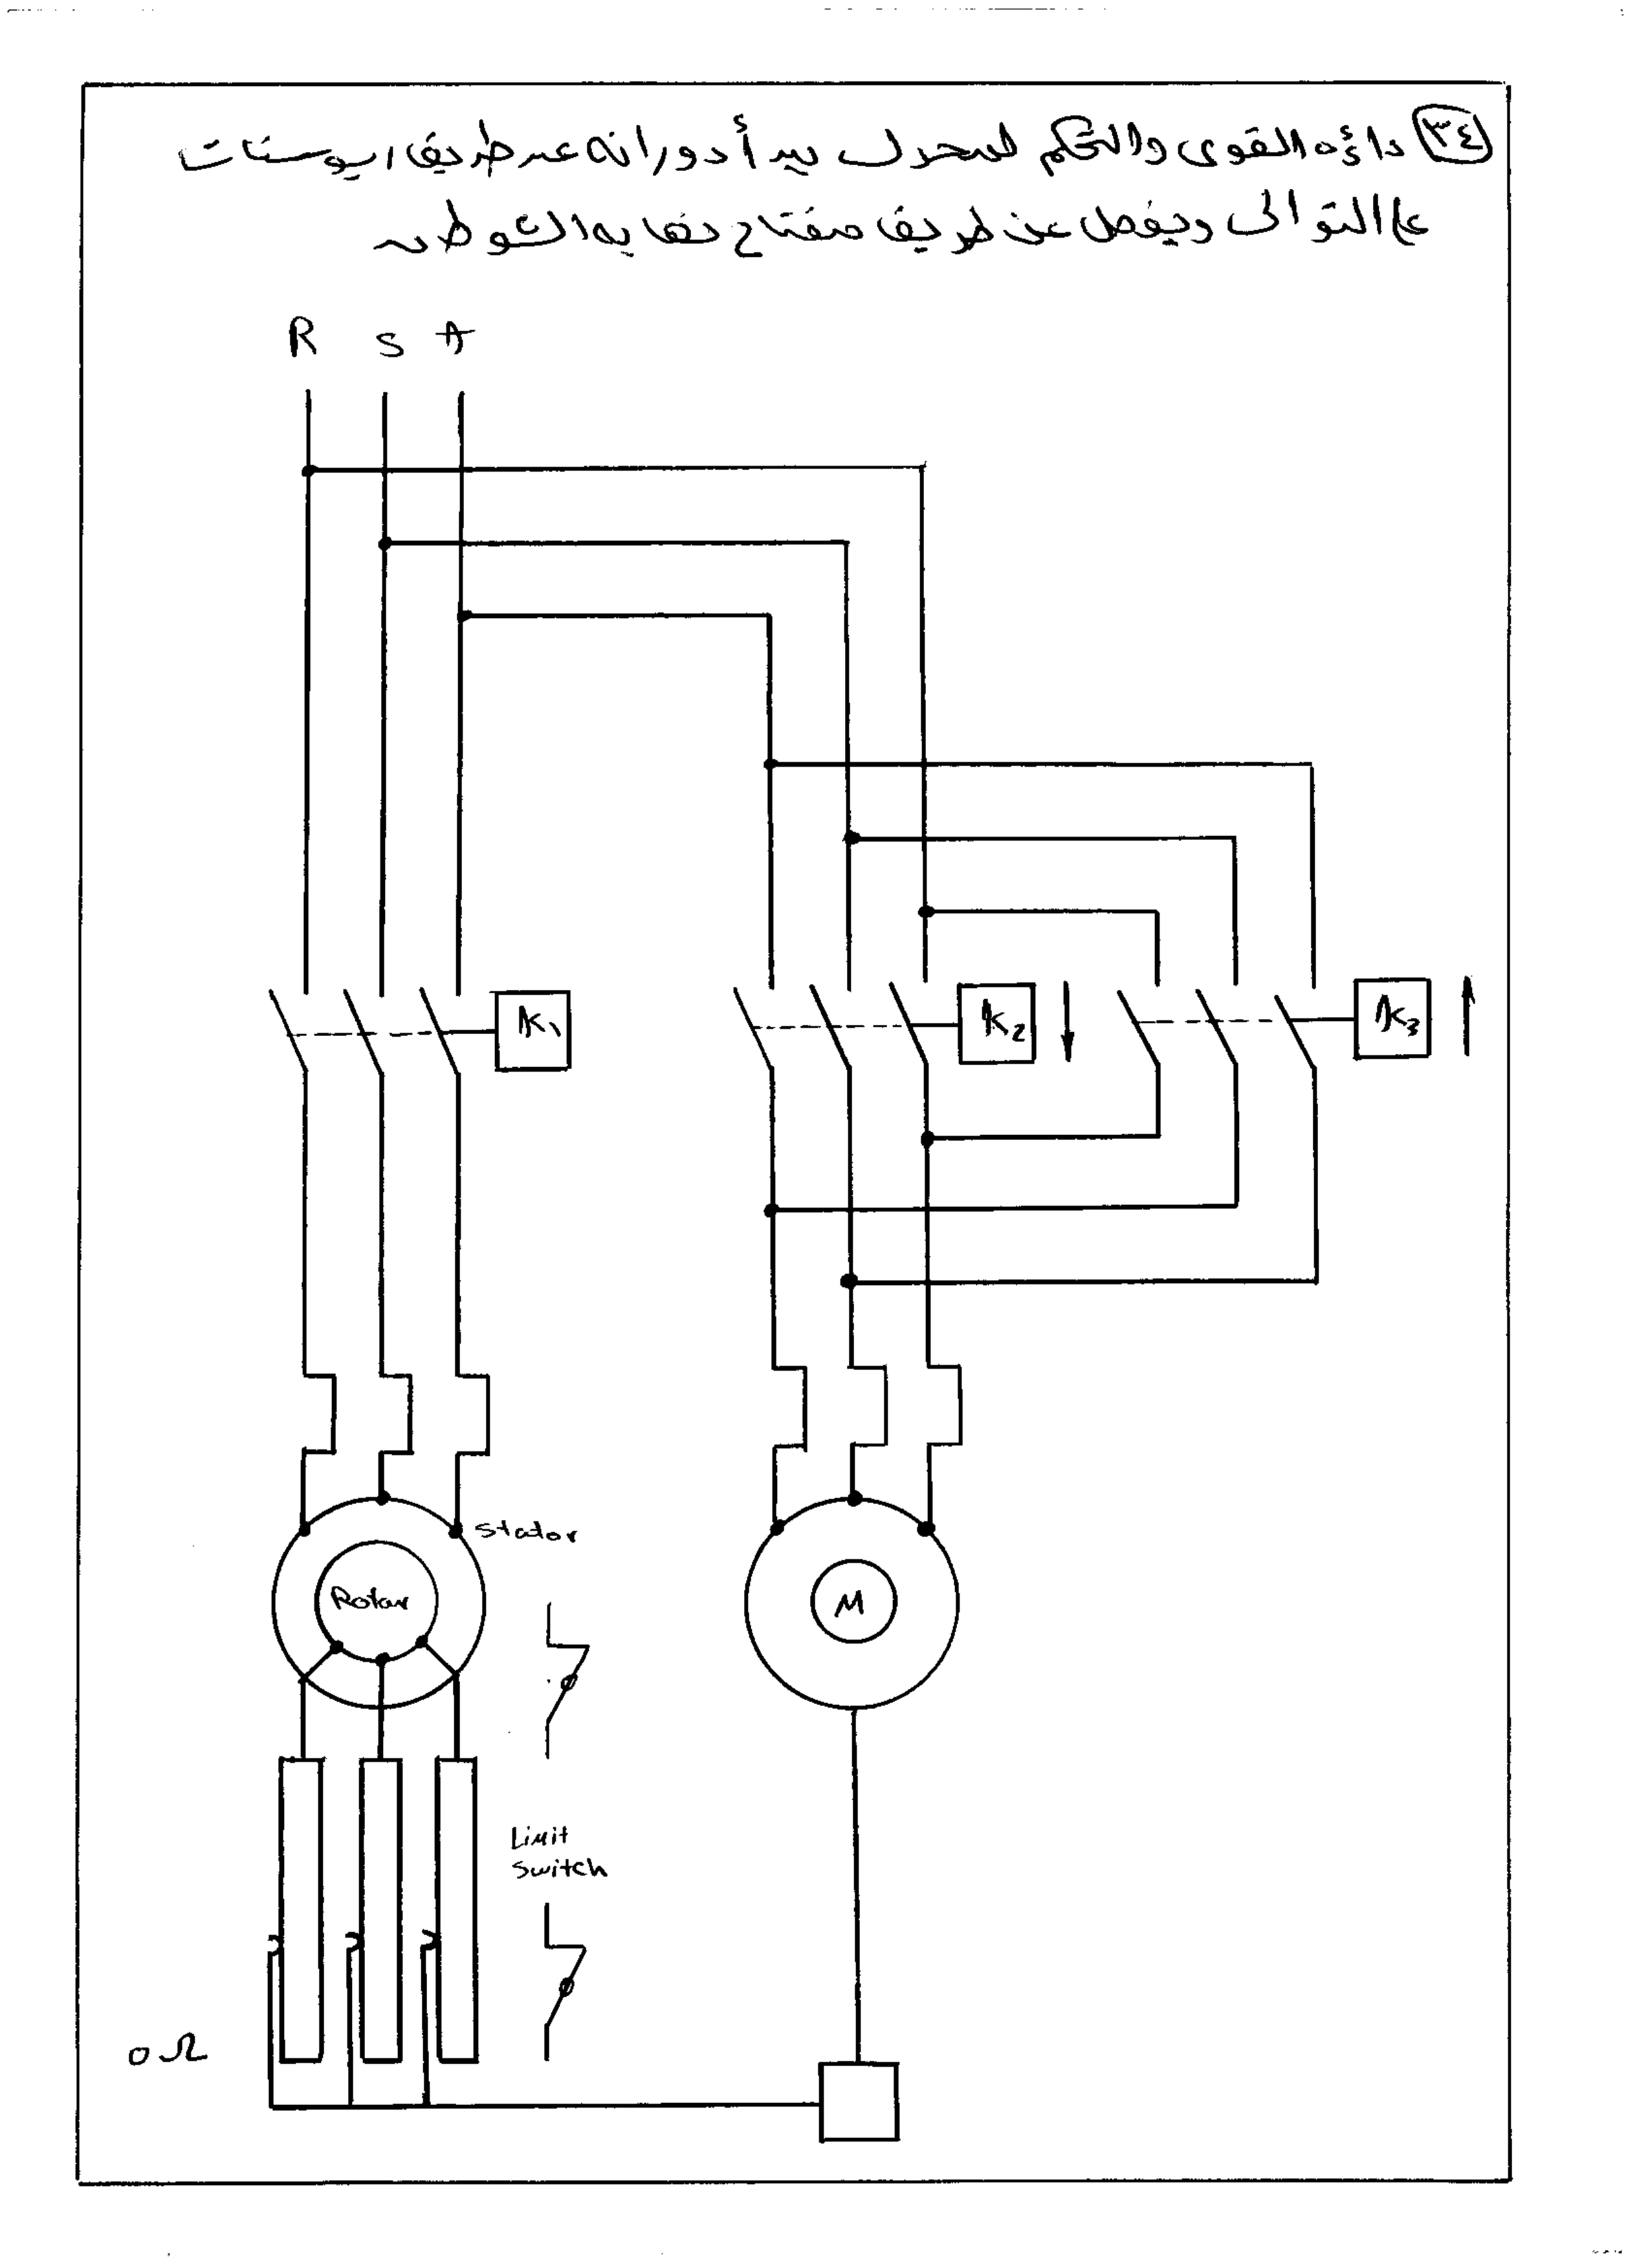 ٣٤ دائره القوى والتحكم لمحرك يبدأ دورانه عن طريق ريوستات
على التوالى ويفصل عن طريق مفتاح نهايه الشوط
R S T
K1
K2
K3
Stator
Rotor
M
Limit
Switch
0Ω